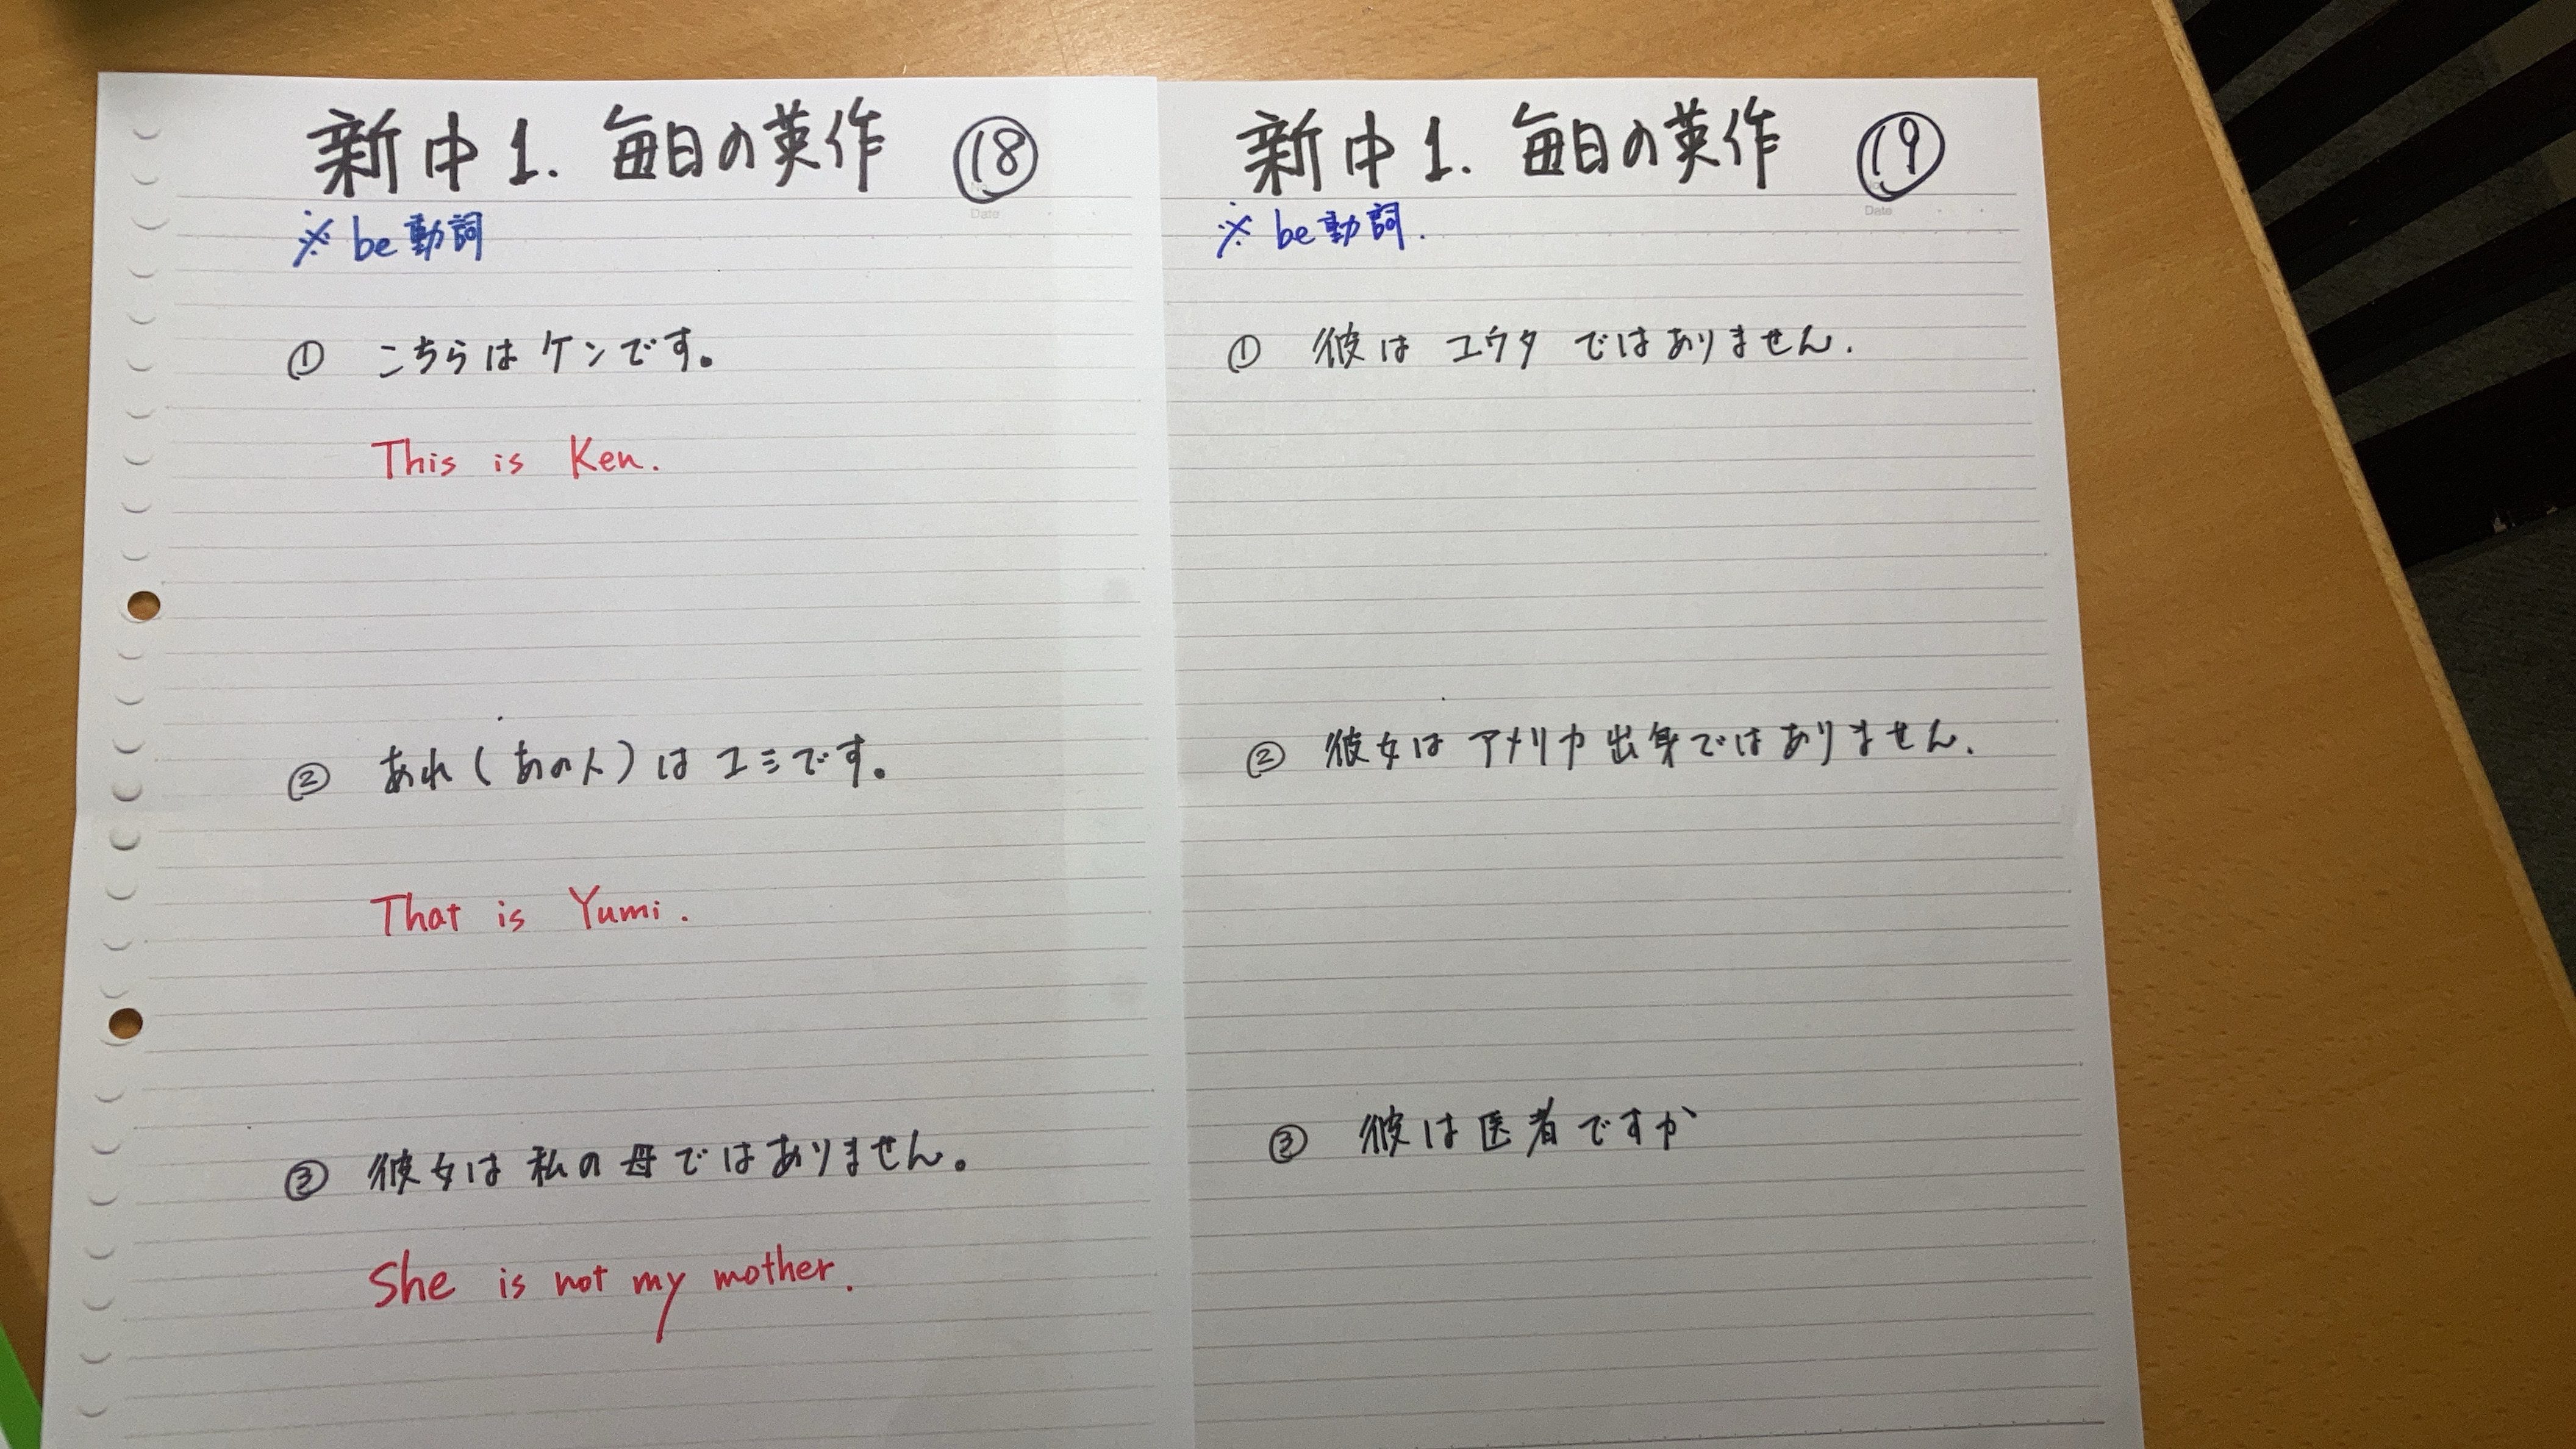 新中1. 毎日の英作 ⑱
Date
※ be動詞
① こちらはケンです。
This is Ken.
② あれ(あの人)はユミです。
That is Yumi.
③ 彼女は私の母ではありません。
She is not my mother.
新中1. 毎日の英作 ⑲
Date
※ be動詞.
① 彼は ユウタ ではありません.
② 彼女は アメリカ出身ではありません.
③ 彼は医者ですか